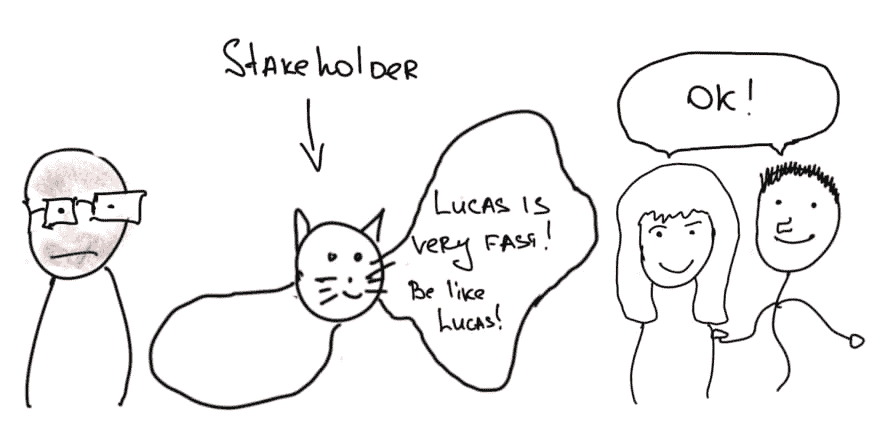 Stakeholder
OK!
Lucas is
very fast!
Be like
Lucas!